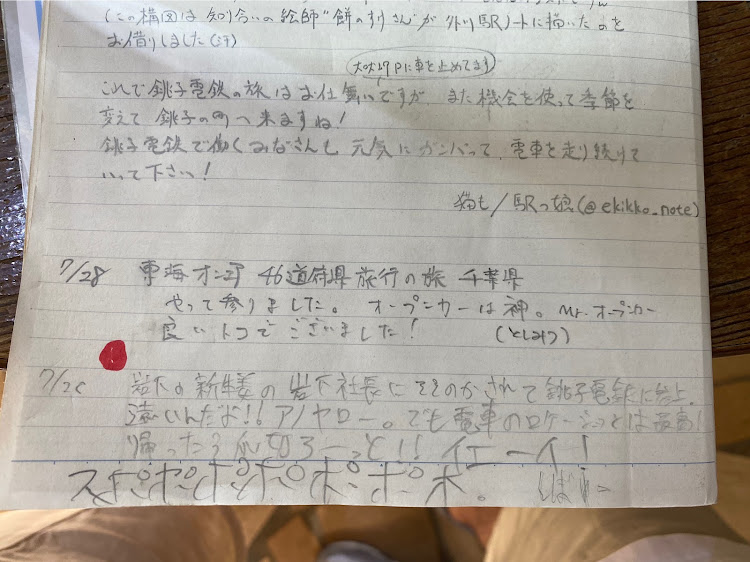 (この構図は知り合いの絵師"餅のすけさん"が外川駅ノートに描いたのを
お借りしました(汗)
犬吠Pに車を止めてます
これで銚子電鉄の旅はお仕舞いですが、また機会を使って季節を
変えて銚子の町へ来ますね!
銚子電鉄で働くみなさんも元気にガンバって、電車を走り続けて
いって下さい!
猫も/駅っ娘(@ekikko_note)
7/28 東海オンエア 46道府県旅行の旅 千葉県
やって参りました。オープンカーは神。Mr.オープンカー
良いトコでございました! (としみつ)
岩下の新生姜の岩下社長にそそのかされて銚子電鉄に参上。
遠いんだよ!!アノヤロー。でも電車のロケーションは最高!
帰ったら
イエーイ!